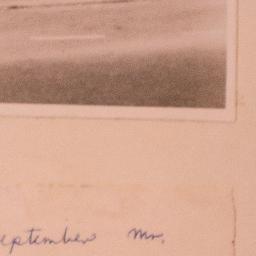 eptember Mr.